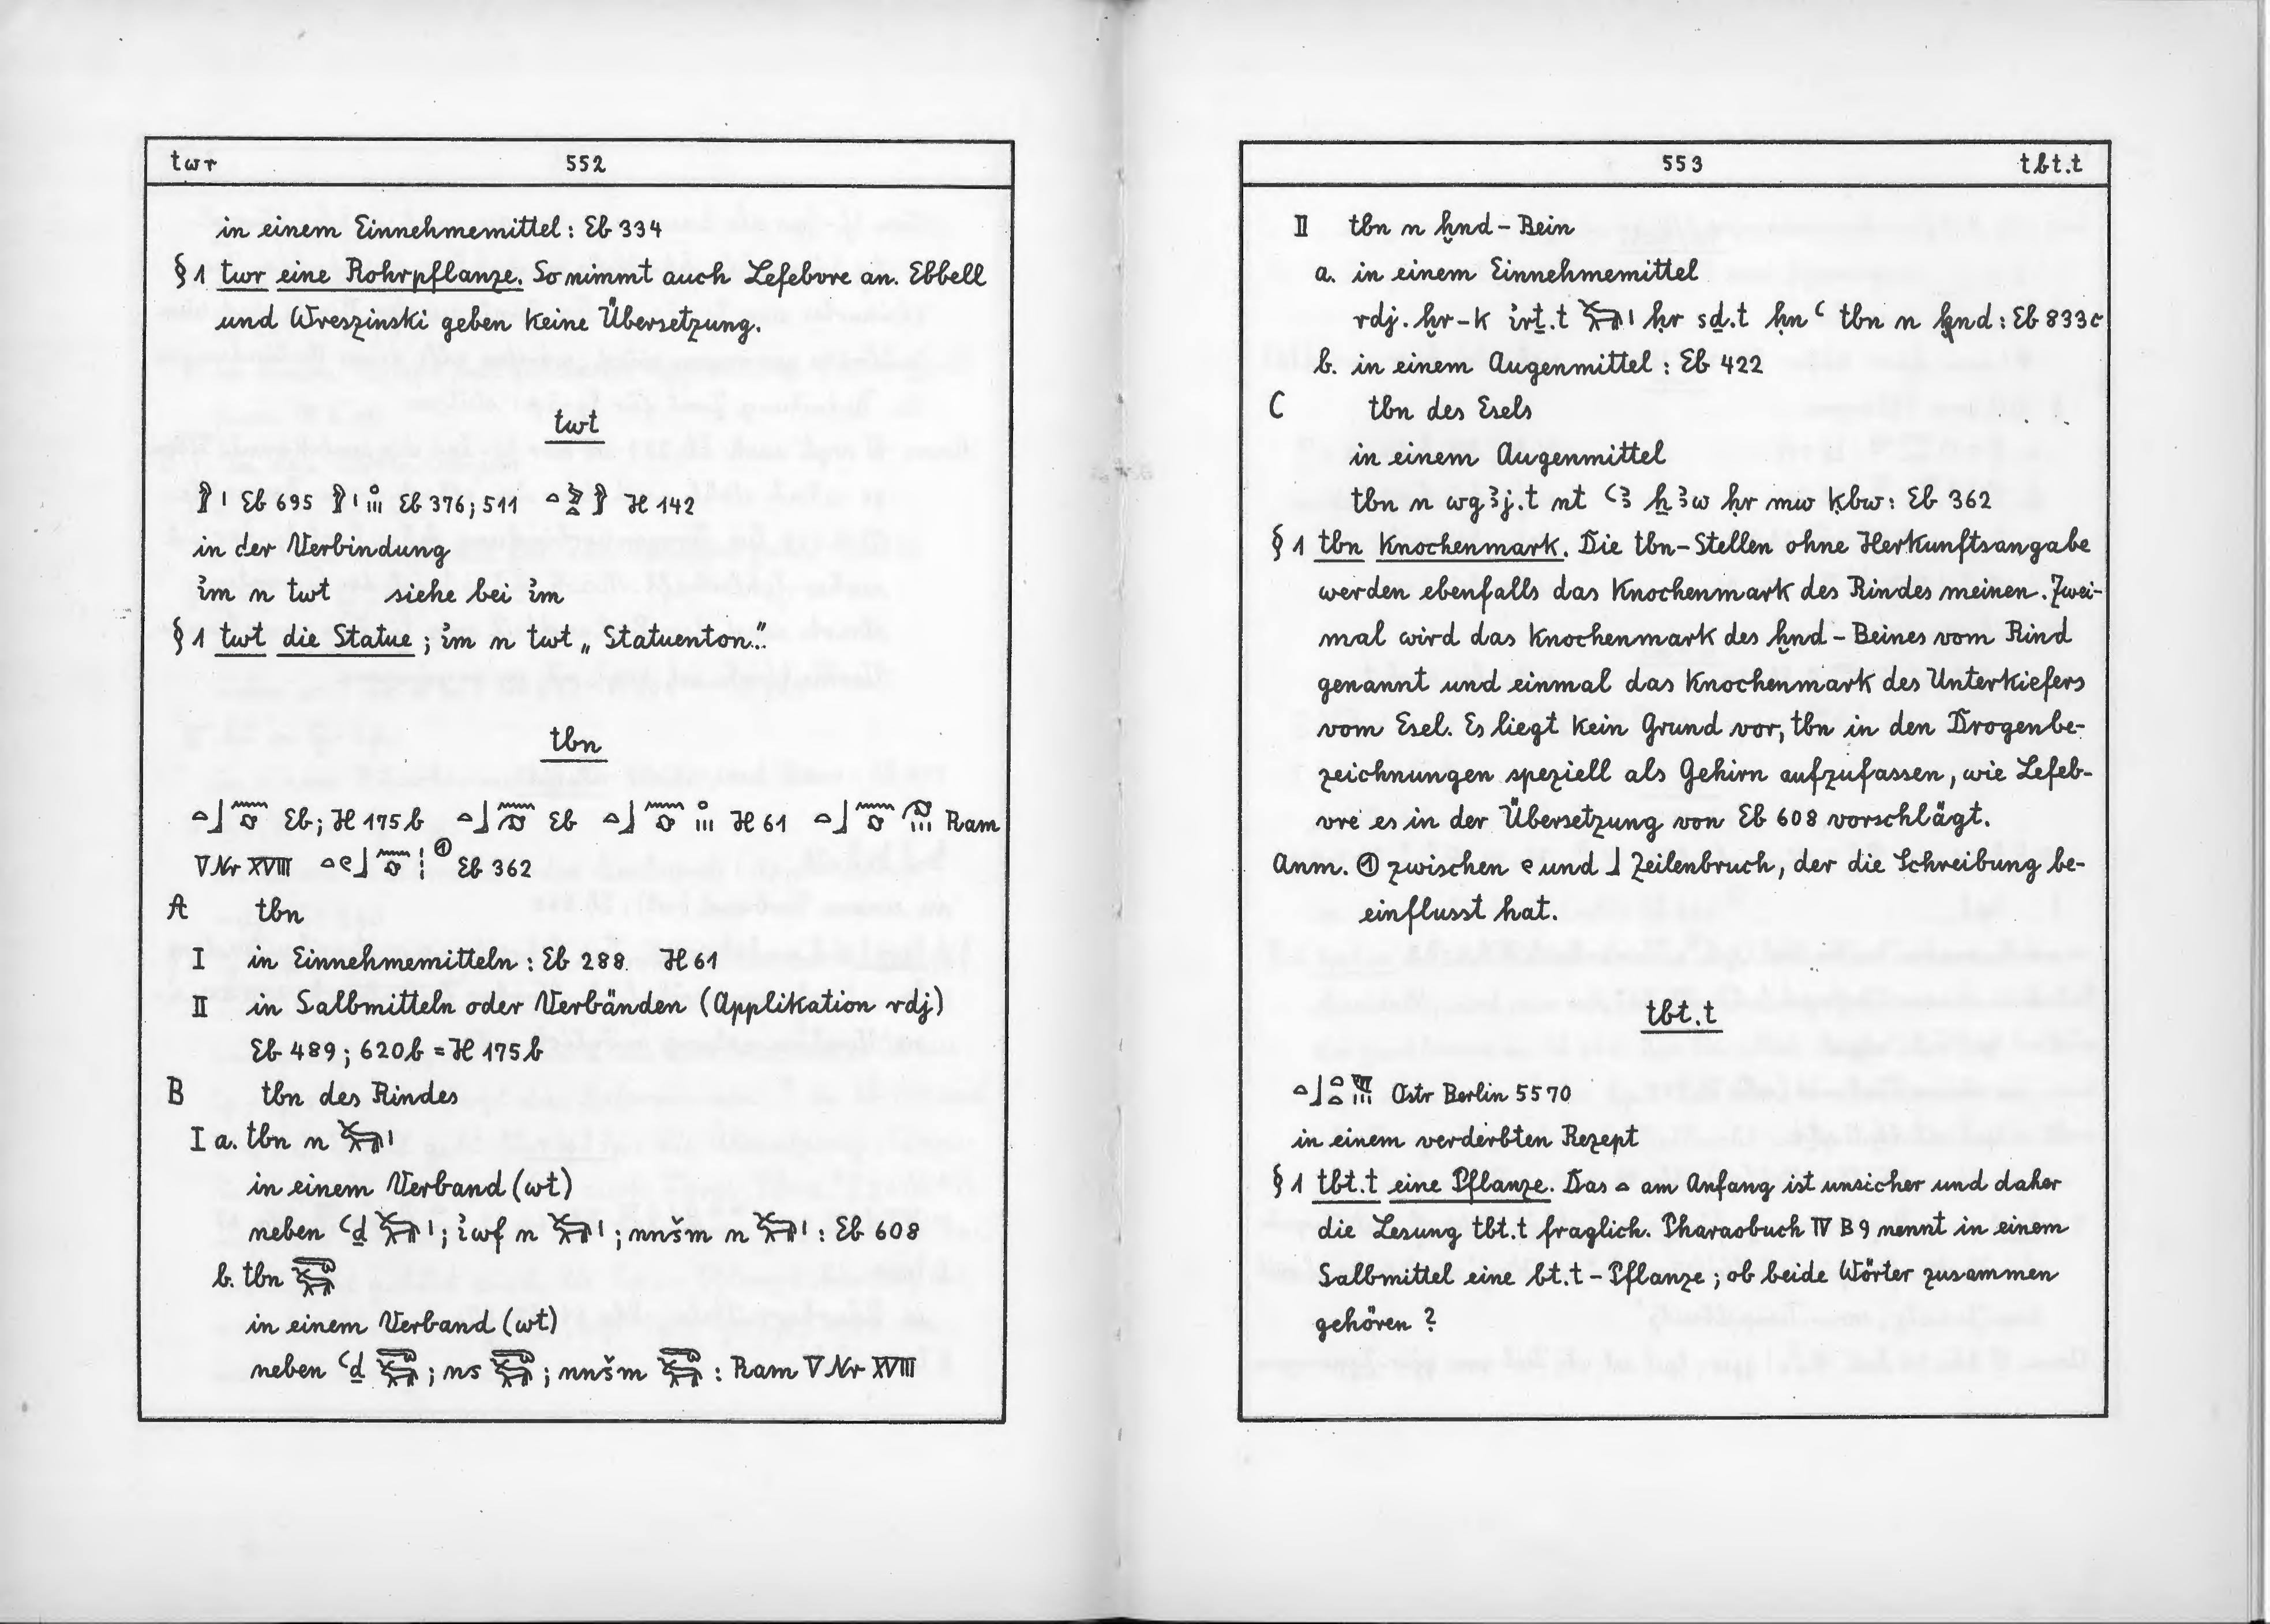 twr 552
in einem Einnehmemittel: Eb 334
§ 1 twr eine Rohrpflanze. So nimmt auch Lefebvre an. Ebbell
und Wreszinski geben keine Übersetzung.
twt
Eb 695 Eb 376; 511 H 142
in der Verbindung
i҆m n twt siehe bei i҆m
§ 1 twt die Statue; i҆m n twt „Statuenton."
tbn
Eb; H 175b Eb H 61 Ram
V Nr XVIII ① Eb 362
A tbn
I in Einnehmemitteln: Eb 288 H 61
II in Salbmitteln oder Verbänden (Applikation rdj)
Eb 489; 620b = H 175b
B tbn des Rindes
I a. tbn n 𓃾
in einem Verband (wt)
neben ꜥḏ; i҆wf n; nnšm n: Eb 608
b. tbn
in einem Verband (wt)
neben ꜥḏ; ns; nnšm: Ram V Nr XVIII
553 tbt.t
II tbn n ḫnd-Bein
a. in einem Einnehmemittel
rdj.ḫr-k i҆rṯ.t ḥr sḏ.t ḥnꜥ tbn n ḫnd: Eb 833c
b. in einem Augenmittel: Eb 422
C tbn des Esels
in einem Augenmittel
tbn n wgꜣj.t nt ꜥꜣ ẖꜣw ḥr mw ḳbw: Eb 362
§ 1 tbn Knochenmark. Die tbn-Stellen ohne Herkunftsangabe
werden ebenfalls das Knochenmark des Rindes meinen. Zwei-
mal wird das Knochenmark des ḫnd-Beines vom Rind
genannt und einmal das Knochenmark des Unterkiefers
vom Esel. Es liegt kein Grund vor, tbn in den Drogenbe-
zeichnungen speziell als Gehirn aufzufassen, wie Lefeb-
vre es in der Übersetzung von Eb 608 vorschlägt.
Anm. ① zwischen 𓏲 und 𓃀 Zeilenbruch, der die Schreibung be-
einflusst hat.
tbt.t
Ostr Berlin 5570
in einem verderbten Rezept
§ 1 tbt.t eine Pflanze. Das 𓏏 am Anfang ist unsicher und daher
die Lesung tbt.t fraglich. Pharaobuch IV B 9 nennt in einem
Salbmittel eine bt.t-Pflanze; ob beide Wörter zusammen
gehören?